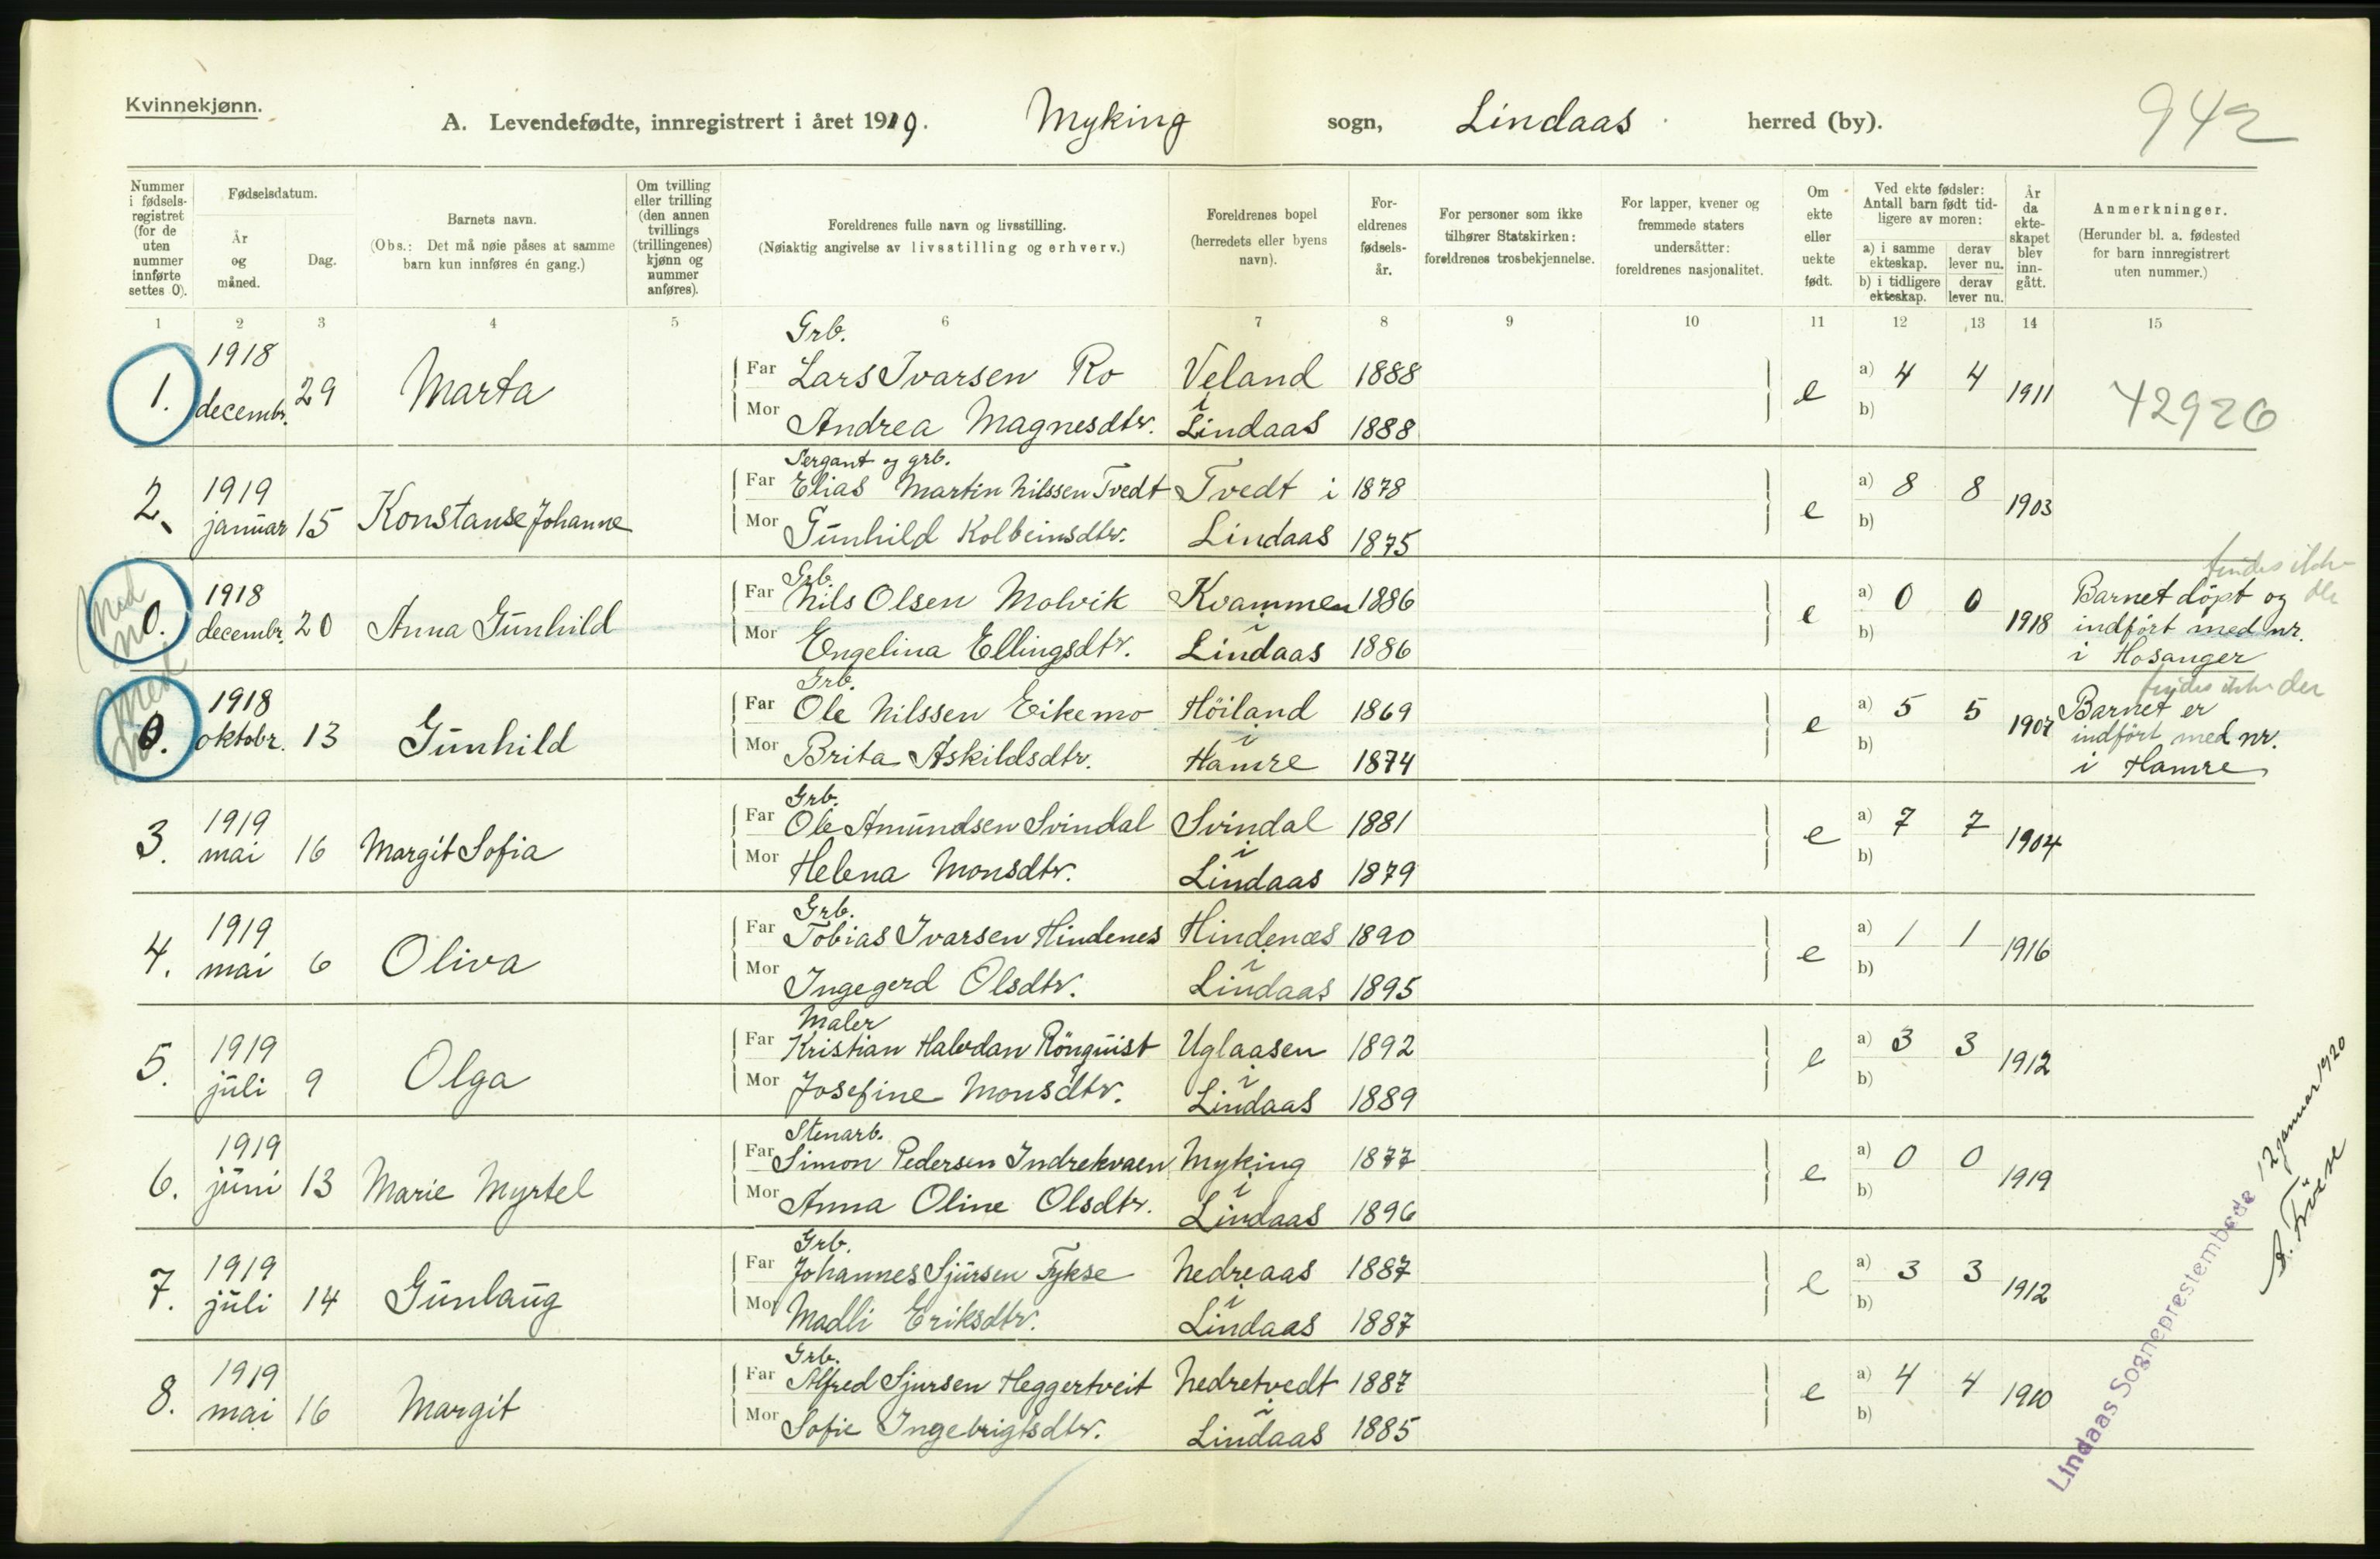 Kvinnekjønn.
A. Levendefødte, innregistrert i året 1919. Myking sogn, Lindaas herred (by). 942
Nummer i fødsels-registret (for de uten nummer innførte settes 0).
Fødselsdatum.
År og måned.
Dag.
Barnets navn.
(Obs.: Det må nøie påses at samme barn kun innføres én gang.)
Om tvilling eller trilling (den annen tvillings (trillingenes) kjønn og nummer anføres).
Foreldrenes fulle navn og livsstilling.
(Nøiaktig angivelse av livsstilling og erhverv.)
Foreldrenes bopel (herredets eller byens navn).
For-eldrenes fødsels-år.
For personer som ikke tilhører Statskirken: foreldrenes trosbekjennelse.
For lapper, kvener og fremmede staters undersåtter: foreldrenes nasjonalitet.
Om ekte eller uekte født.
Ved ekte fødsler: Antall barn født tid-ligere av moren:
a) i samme ekteskap. derav lever nu.
b) i tidligere ekteskap. derav lever nu.
År da ekte-skapet blev inn-gått.
Anmerkninger.
(Herunder bl. a. fødested for barn innregistrert uten nummer.)
1 2 3 4 5 6 7 8 9 10 11 12 13 14 15
Grb.
1918 Far Lars Ivarsen Ro Veland 1888 a) 4 4
1. decembr. 29 Marta i e 1911 42926
Mor Andrea Magnesdtr. Lindaas 1888 b)
Sergant og grb.
1919 Far Elias Martin Nilssen Tvedt Tvedt i 1878 a) 8 8
2. januar 15 Konstanse Johanne e 1903
Mor Gunhild Kolbeinsdtr. Lindaas 1875 b)
Grb. findes ikke
1918 Far Nils Olsen Molvik Kvammen 1886 a) 0 0 Barnet döpt og
0. decembr. 20 Anna Gunhild i e 1918 indført med nr.
Mor Engelina Ellingsdtr. Lindaas 1886 b) i Hosanger
Med
Grb. findes ikke der
1918 Far Ole Nilssen Eikemo Höiland 1869 a) 5 5 Barnet er
0. oktobr. 13 Gunhild i e 1907 indført med nr.
Mor Brita Askildsdtr. Hamre 1874 b) i Hamre
Med
Grb.
1919 Far Ole Amundsen Svindal Svindal 1881 a) 7 7
3. mai 16 Margit Sofia i e 1904
Mor Helena Monsdtr. Lindaas 1879 b)
Grb.
1919 Far Tobias Ivarsen Hindenes Hindenæs 1890 a) 1 1
4. mai 6 Oliva i e 1916
Mor Ingegerd Olsdtr. Lindaas 1895 b)
Maler
1919 Far Kristian Halvdan Rönquist Uglaasen 1892 a) 3 3
5. juli 9 Olga i e 1912
Mor Josefine Monsdtr. Lindaas 1889 b)
Stenarb.
1919 Far Simon Pedersen Indrekvaen Myking 1877 a) 0 0
6. juni 13 Marie Myrtel i e 1919
Mor Anna Oline Olsdtr. Lindaas 1896 b)
Grb.
1919 Far Johannes Sjursen Fykse Nedreaas 1887 a) 3 3
7. juli 14 Gunlaug i e 1912
Mor Madli Eriksdtr. Lindaas 1887 b)
Grb.
1919 Far Alfred Sjursen Heggertveit Nedretvedt 1887 a) 4 4
8. mai 16 Margit i e 1910
Mor Sofie Ingebrigtsdtr. Lindaas 1885 b)
Lindaas Sogneprestembede 12 januar 1920